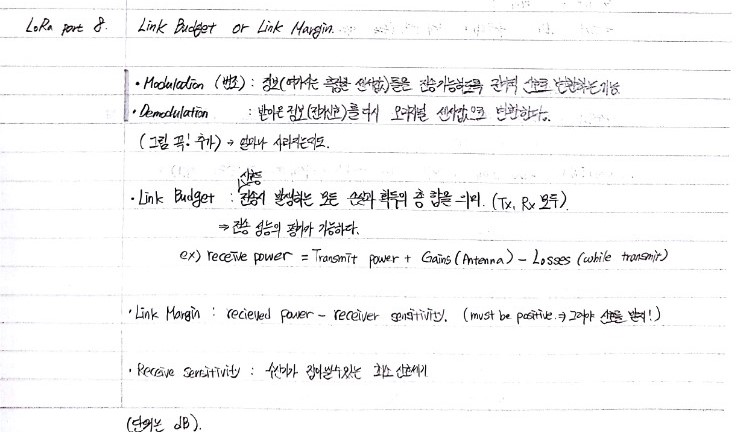 LoRa part 8. Link Budget or Link Margin.
• Modulation (변조) : 정보(여기서는 측정한 센서값)들을 전송가능하도록 전기적 신호로 변환하는기능
• Demodulation : 받아온 정보(전기신호)를 다시 오리지널 센서값으로 변환한다.
(그림 꼭! 추가) → 얼마나 사라지는지도.
신호등
• Link Budget : 전송시 발생하는 모든 손실과 획득의 총 합을 의미. (Tx, Rx 모두)
⇒ 전송 성능의 평가가 가능하다.
ex) receive power = Transmit power + Gains (Antenna) - Losses (while transmit)
• Link Margin : recieved power - receiver sensitivity. (must be positive. ⇒ 그래야 신호를 받지!)
• Receive sensitivity : 수신기가 잡아낼수있는 최소 신호세기
(단위는 dB).